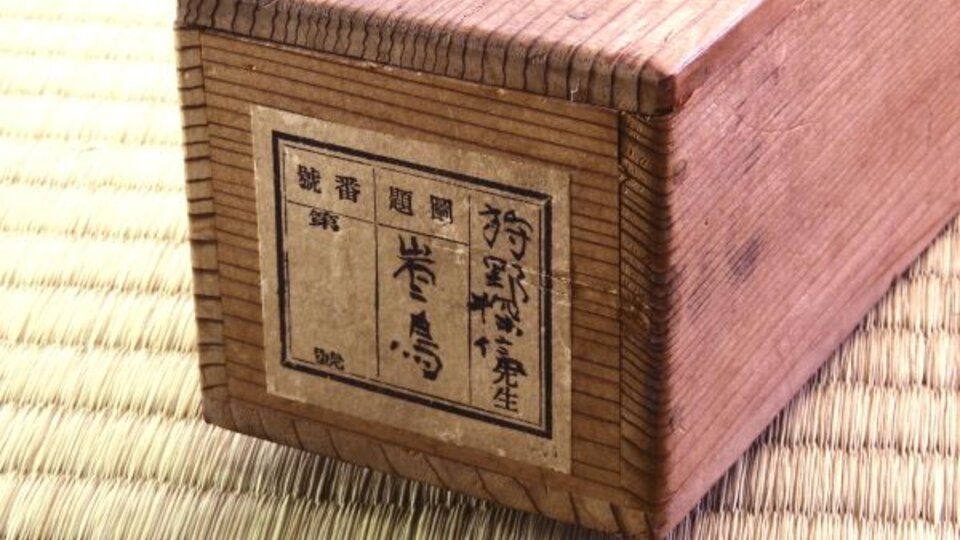 狩野信先生
圖題
鳥
番號
第
號